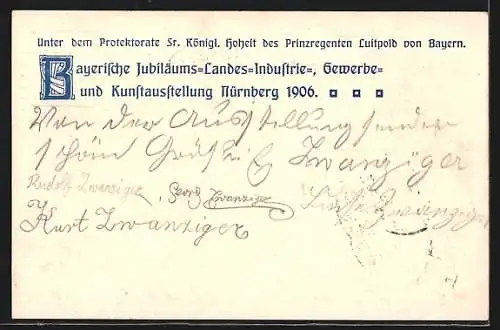 Unter dem Protektorate Sr. Königl. Hoheit des Prinzregenten Luitpold von Bayern.
Bayerische Jubiläums=Landes=Industrie=, Gewerbe=
und Kunstausstellung Nürnberg 1906.
Von der Ausstellung senden
schöne Grüße E Zwanziger
Rudolf Zwanziger, Georg Zwanziger
Zwanziger
Kurt Zwanziger